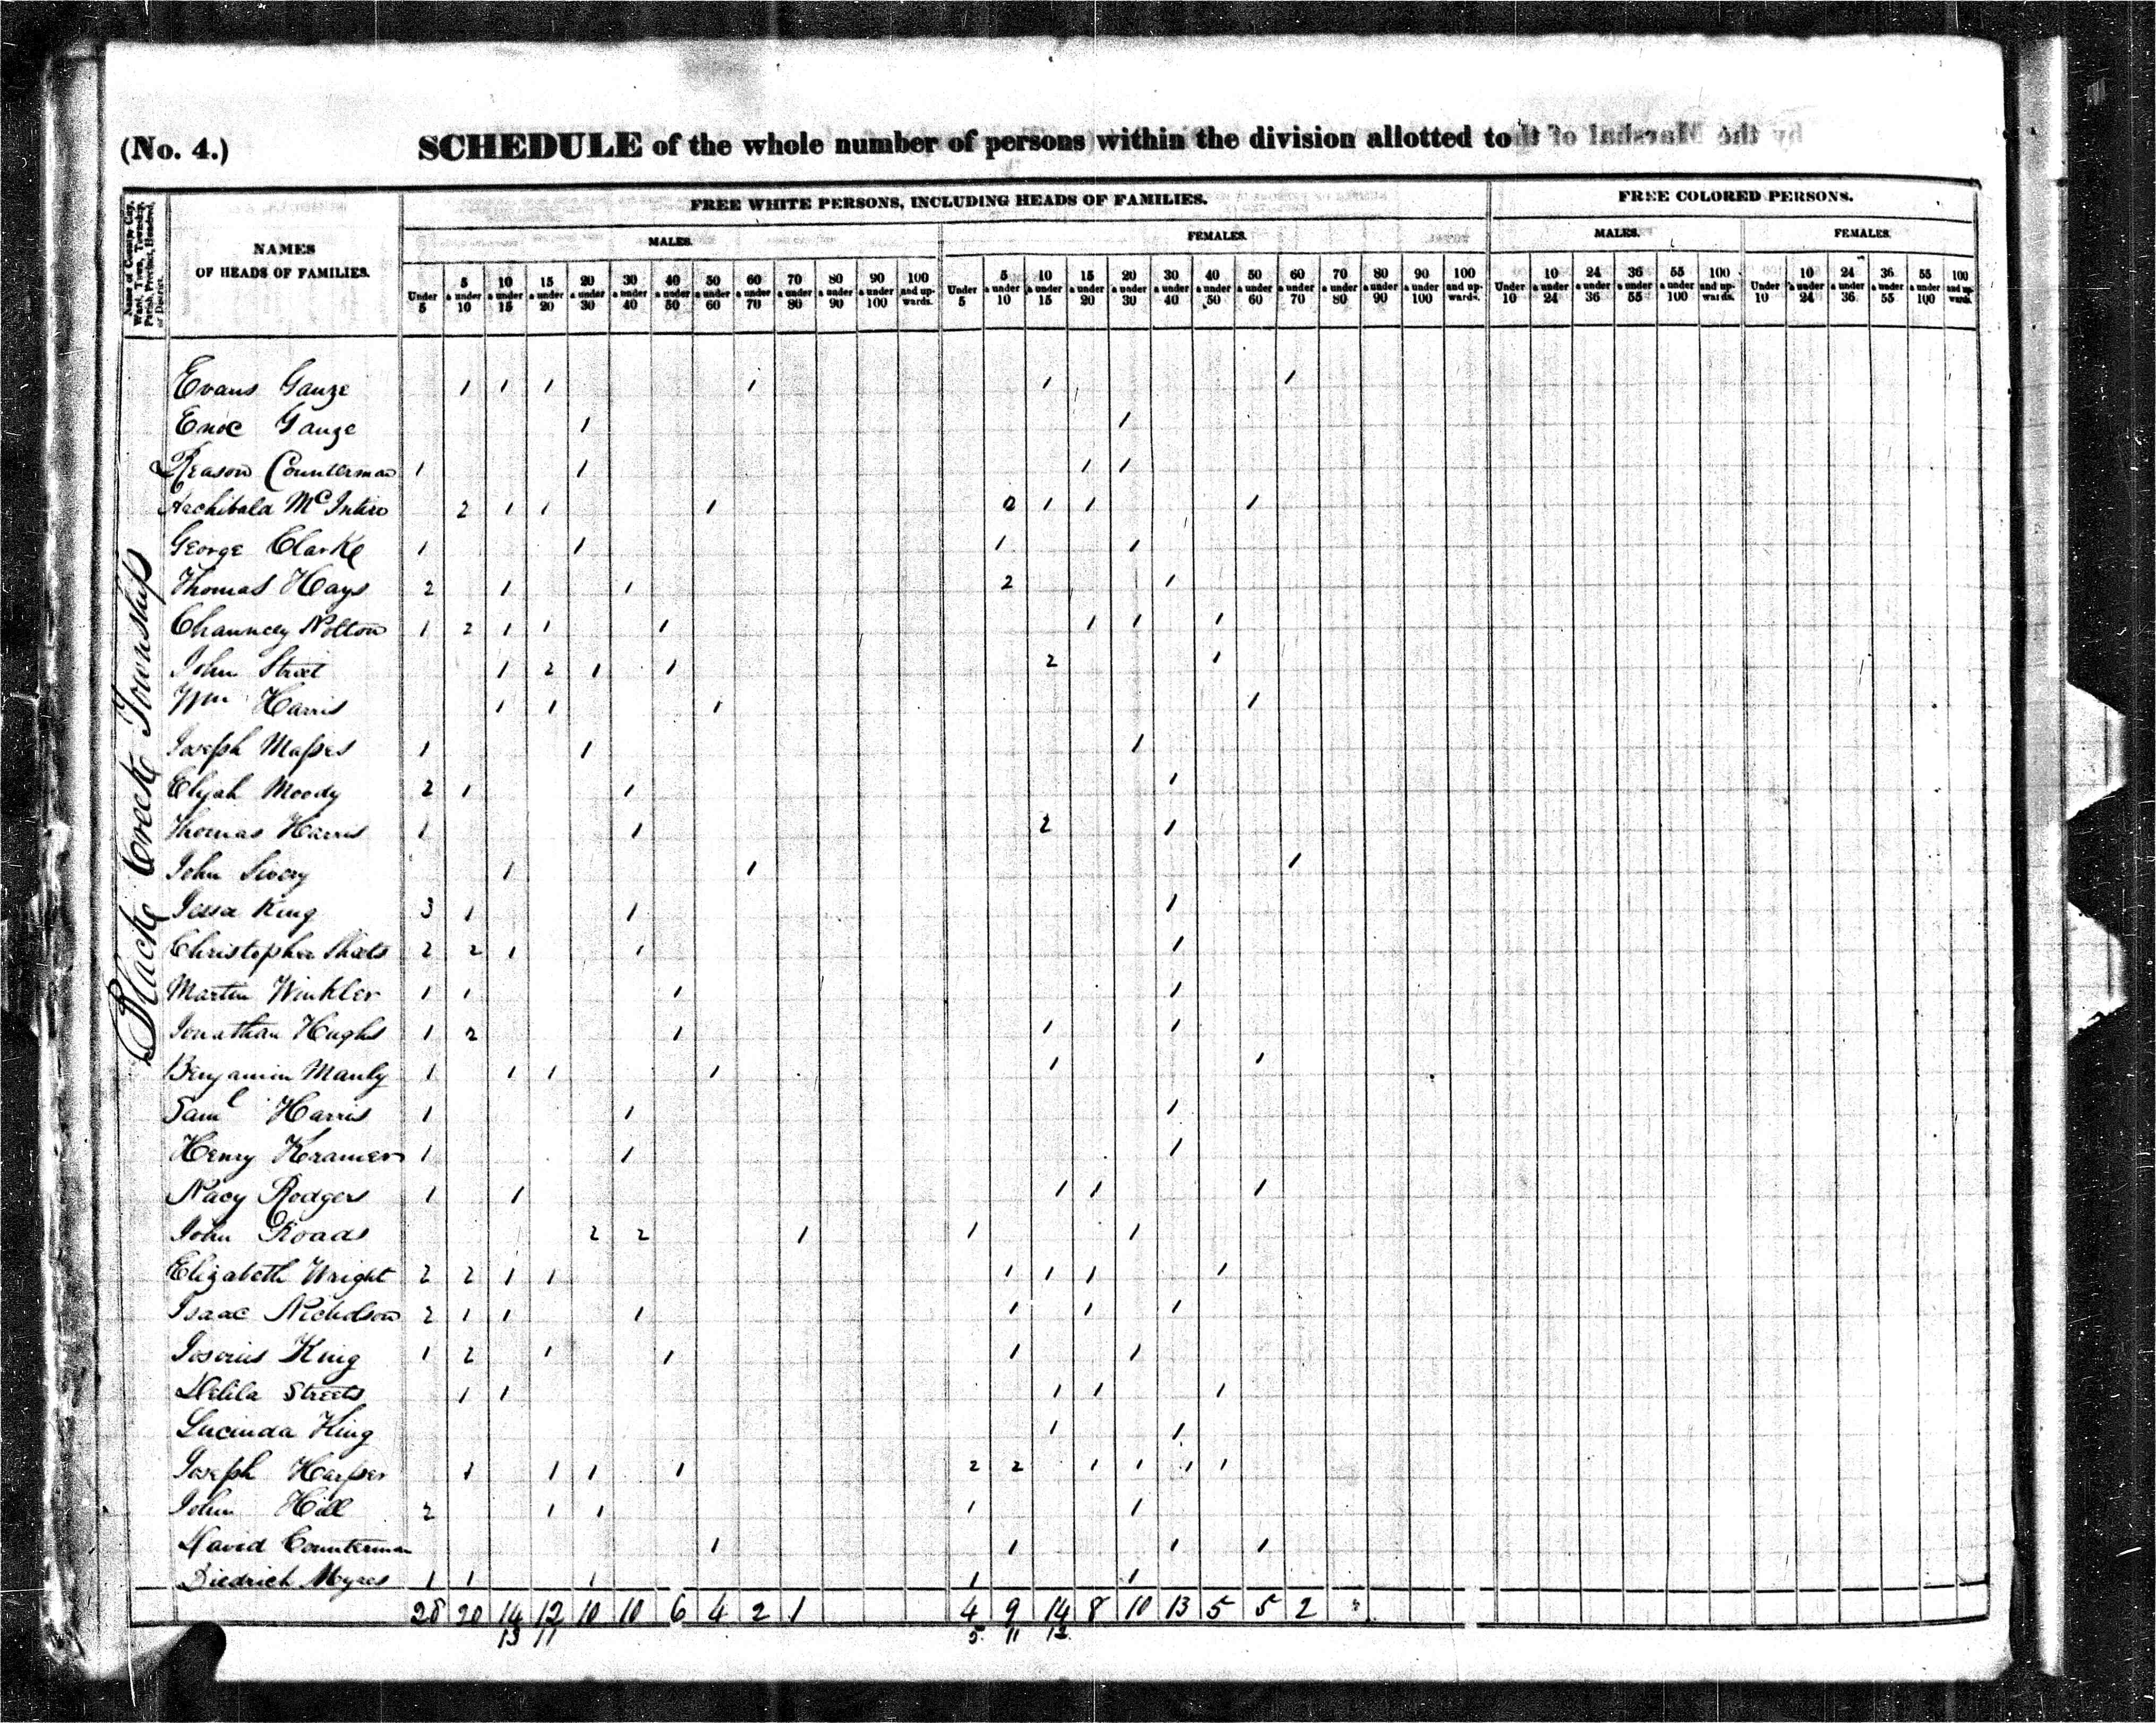 (No. 4.) SCHEDULE of the whole number of persons within the division allotted to by the Marshal of th
Name of County, City, Ward, Town, Township, Parish, Precinct, Hundred, or District.
NAMES OF HEADS OF FAMILIES.
FREE WHITE PERSONS, INCLUDING HEADS OF FAMILIES.
FREE COLORED PERSONS.
MALES. FEMALES. MALES. FEMALES.
Under 5 5 & under 10 10 & under 15 15 & under 20 20 & under 30 30 & under 40 40 & under 50 50 & under 60 60 & under 70 70 & under 80 80 & under 90 90 & under 100 100 and upwards.
Under 5 5 & under 10 10 & under 15 15 & under 20 20 & under 30 30 & under 40 40 & under 50 50 & under 60 60 & under 70 70 & under 80 80 & under 90 90 & under 100 100 and upwards.
Under 10 10 & under 24 24 & under 36 36 & under 55 55 & under 100 100 and upwards.
Under 10 10 & under 24 24 & under 36 36 & under 55 55 & under 100 100 and upwards.
Black Creek Township
Evans Gauze 1 1 1 1 1 1
Enoc Gauze 1 1
Reason Counterman 1 1 1 1
Archibald McIntire 2 1 1 1 2 1 1 1
George Clarke 1 1 1 1
Thomas Hays 2 1 1 2 1
Chauncey Nolton 1 2 1 1 1 1 1 1
John Street 1 2 1 1 2 1
Wm Harris 1 1 1 1
Joseph Masses 1 1 1
Elijah Moody 2 1 1 1
Thomas Harris 1 1 2 1
John 1 1 1
Jesse King 3 1 1 1
Christopher Sheets 2 2 1 1 1
Martin Winkler 1 1 1 1
Jonathan Hughs 1 2 1 1 1
Benjamin Manly 1 1 1 1 1 1
Saml Harris 1 1 1
Henry Kramer 1 1 1
Nacy Rodgers 1 1 1 1 1
John Roads 2 2 1 1 1
Elizabeth Wright 2 2 1 1 1 1 1 1
Isaac Nicholson 2 1 1 1 1 1 1
King 1 2 1 1 1 1
Delila Streets 1 1 1 1 1
Lucinda King 1 1
Joseph Harper 1 1 1 1 2 2 1 1 1 1
John Hill 2 1 1 1 1
David Counterman 1 1 1 1
Diedrich Myres 1 1 1 1 1
28 20 14 12 10 10 6 4 2 1 4 9 14 8 10 13 5 5 2
13 11 5 11 12